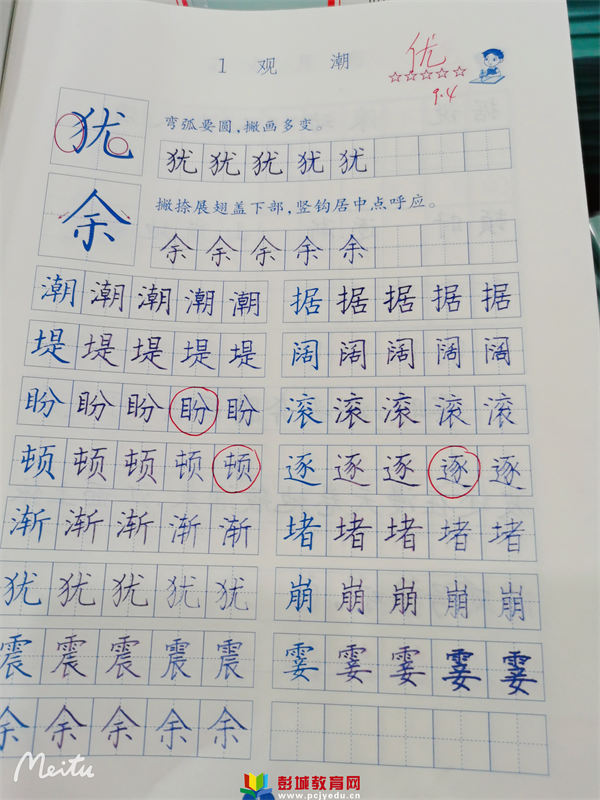 1 观 潮
优
9.4
犹
弯弧要圆,撇画多变。
犹 犹 犹 犹 犹
余
撇捺展翅盖下部,竖钩居中点呼应。
余 余 余 余 余
潮 潮 潮 潮 潮 据 据 据 据 据
堤 堤 堤 堤 堤 阔 阔 阔 阔 阔
盼 盼 盼 盼 盼 滚 滚 滚 滚 滚
顿 顿 顿 顿 顿 逐 逐 逐 逐 逐
渐 渐 渐 渐 渐 堵 堵 堵 堵 堵
犹 犹 犹 犹 犹 崩 崩 崩 崩 崩
震 震 震 震 震 霎 霎 霎 霎 霎
余 余 余 余 余
Meitu
彭城教育网
www.pcjyedu.cn